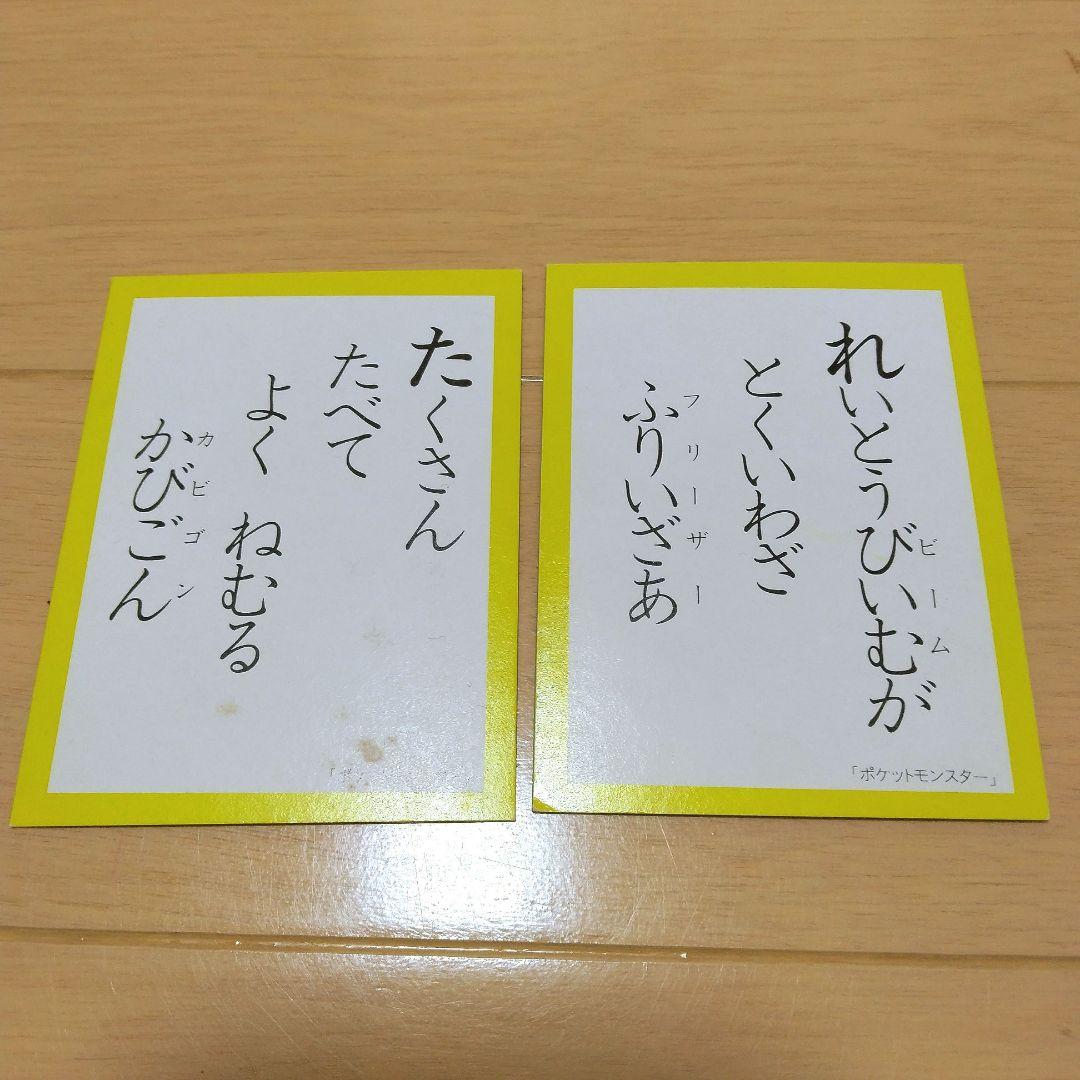 れいとうびいむが
ビーム
とくいわざ
ふりいざあ
フリーザー
「ポケットモンスター」
たくさん
たべて
よく ねむる
かびごん
カビゴン